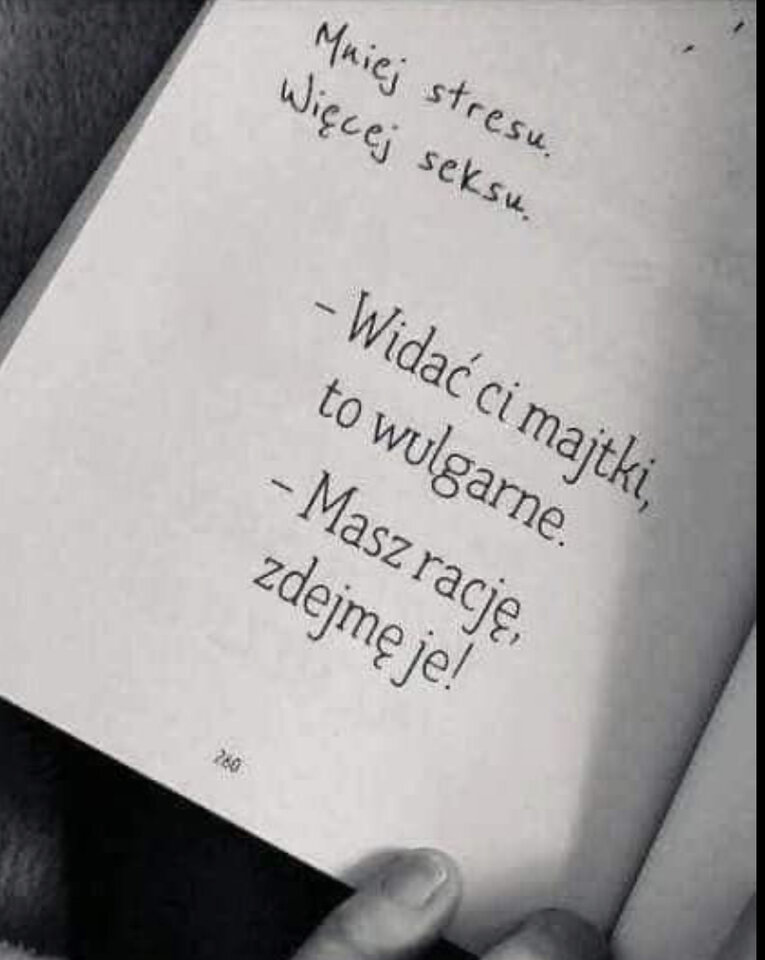 Mniej stresu.
Więcej seksu.
– Widać ci majtki,
to wulgarne.
– Masz rację,
zdejmę je!
260